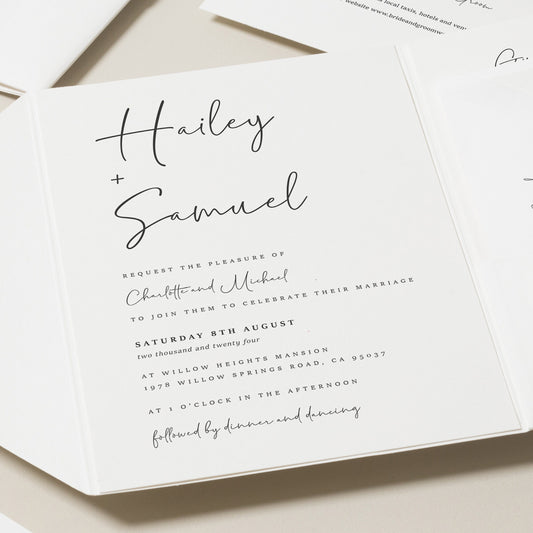 groom
local taxis, hotels and ven
website www.brideandgroomw
Hailey
+
Samuel
REQUEST THE PLEASURE OF
Charlotte and Michael
TO JOIN THEM TO CELEBRATE THEIR MARRIAGE
SATURDAY 8TH AUGUST
two thousand and twenty four
AT WILLOW HEIGHTS MANSION
1978 WILLOW SPRINGS ROAD, CA 95037
AT 1 O'CLOCK IN THE AFTERNOON
followed by dinner and dancing